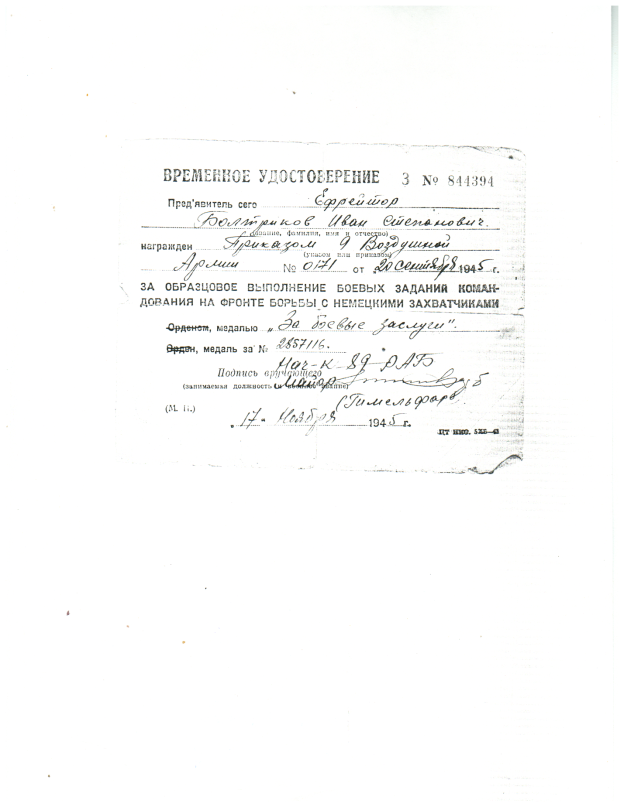 ВРЕМЕННОЕ УДОСТОВЕРЕНИЕ З № 844394
Пред'явитель сего Ефрейтор
Болтриков Иван Степанович.
(звание, фамилия, имя и отчество)
награжден Приказом 9 Воздушной
(указом или приказом)
Армии № 0171 от 20 сентября 1945 г.
ЗА ОБРАЗЦОВОЕ ВЫПОЛНЕНИЕ БОЕВЫХ ЗАДАНИЙ КОМАН-
ДОВАНИЯ НА ФРОНТЕ БОРЬБЫ С НЕМЕЦКИМИ ЗАХВАТЧИКАМИ
Орденом, медалью „За боевые заслуги".
Орден, медаль за № 2857116.
Нач-к 89 РАБ
Подпись вручающего
(занимаемая должность и звание)
майор
(Гимельфарб)
(М. П.)
„17" Ноября 1945 г.